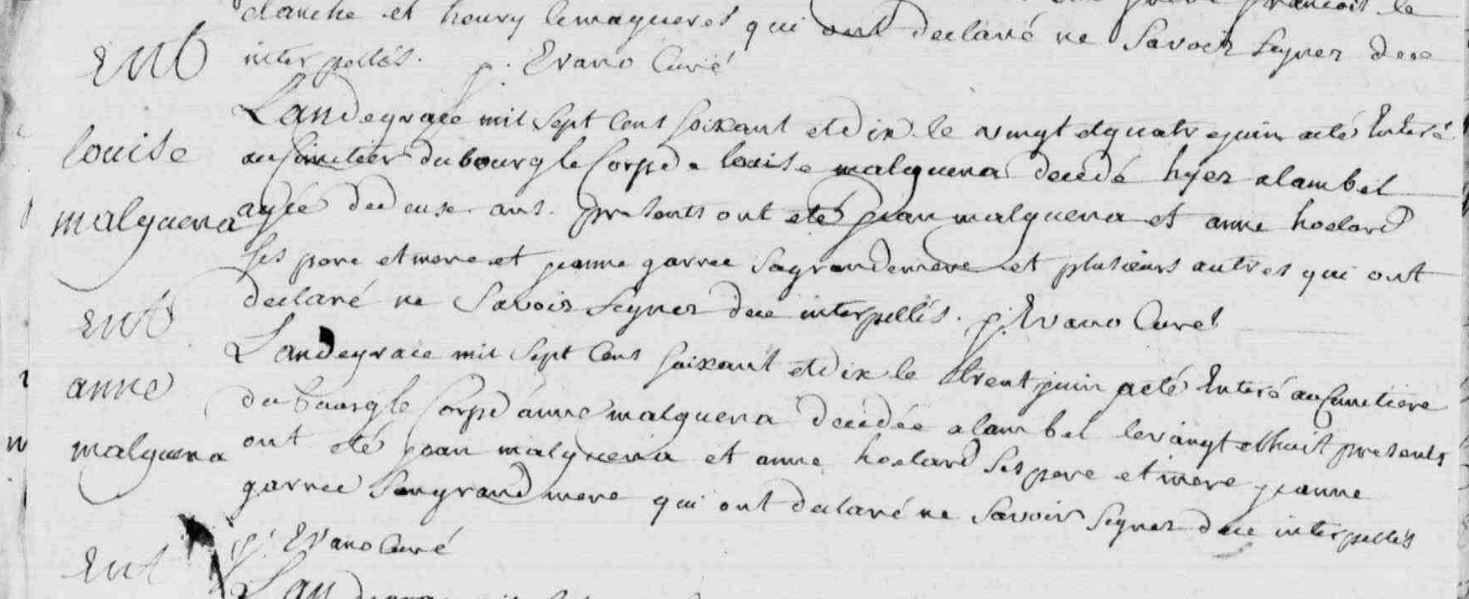 blanche et henry lemagueres qui ont declaré ne Savoir Signer dece
Ent interpellés. p. Evano Curé
L'an de grace mil Sept Cent Soixant et dix le vingt et quatre juin a eté Enteré
louise au Cimetier du bourg le Corps de louise malguena decedé hyer a lambel
malguena agée de deuse ans. presents ont eté jean malguena et anne hoelard
Ses pere et mere et jeanne garrec Sa grande mere et plusieurs autres qui ont
Ent declaré ne Savoir Signer dece interpellés. p. Evano Curé
L'an de grace mil Sept Cent Soixant et dix le trent juin a eté Enteré au Cimetiere
anne du bourg le Corps d'anne malguena decedée a lambel le vingt et huit presents
malguena ont eté jean malguena et anne hoelard Ses pere et mere jeanne
garrec Son grand mere qui ont declaré ne Savoir Signer dece interpellés
p. Evano Curé
Ent L'an